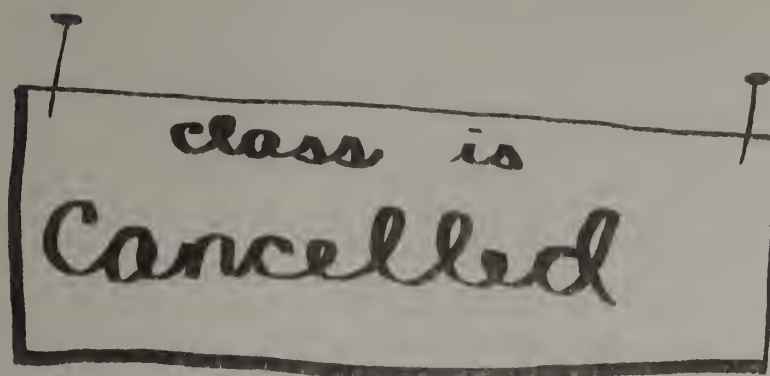 class is
Cancelled